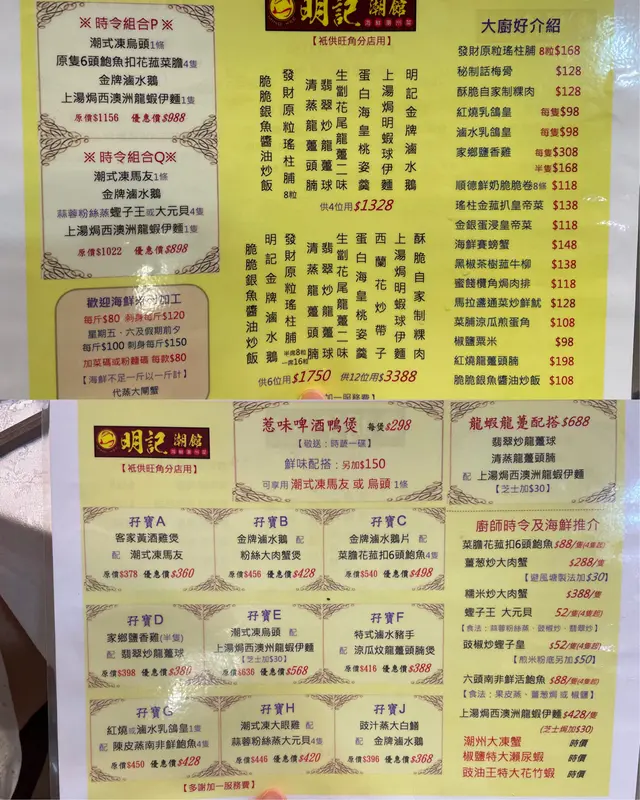 ※ 時令組合P ※
潮式凍烏頭1條
原隻6頭鮑魚扣花菇菜膽4隻
金牌滷水鵝
上湯焗西澳洲龍蝦伊麵1隻
原價$1156 優惠價$988
※ 時令組合Q※
潮式凍馬友1條
金牌滷水鵝
蒜蓉粉絲蒸蟶子王或大元貝4隻
上湯焗西澳洲龍蝦伊麵1隻
原價$1022 優惠價$898
每斤$80 刺身每斤$120
星期五、六及假期前夕
每斤$100 刺身每斤$150
加菜碼或粉麵碼 每款$80
【海鮮不足一斤以一斤計】
代蒸大閘蟹
明記潮館
【祗供旺角分店用】
明記金牌滷水鵝
上湯焗明蝦球伊麵
蛋白海皇桃姿羹
生劏花尾龍躉二味
翡翠炒龍躉球
清蒸龍躉頭腩
發財原粒瑤柱脯8粒
脆脆銀魚醬油炒飯
供4位用$1328
酥脆自家制粿肉
上湯焗明蝦球伊麵
西蘭花炒帶子
蛋白海皇桃姿羹
生劏花尾龍躉二味
翡翠炒龍躉球
清蒸龍躉頭腩
發財原粒瑤柱脯 半席8粒 一席16粒
明記金牌滷水鵝
脆脆銀魚醬油炒飯
供6位用$1750 供12位用$3388
加一服務費】
大廚好介紹
發財原粒瑤柱脯 8粒$168
秘制話梅骨 $128
酥脆自家制粿肉 $128
紅燒乳鴿皇 每隻$98
滷水乳鴿皇 每隻$98
家鄉鹽香雞 每隻$308
半隻$168
順德鮮奶脆脆卷8條 $118
瑤柱金菇扒皇帝菜 $138
金銀蛋浸皇帝菜 $118
海鮮賽螃蟹 $148
黑椒茶樹菇牛柳 $138
蜜餞欖角焗肉排 $118
馬拉盞通菜炒鮮魷 $128
菜脯涼瓜煎蛋角 $108
椒鹽粟米 $98
紅燒龍躉頭腩 $198
脆脆銀魚醬油炒飯 $108
明記潮館
【祗供旺角分店用】
惹味啤酒鴨煲 每煲$298
【敬送：時蔬一碟】
鮮味配搭：另加$150
可享用 潮式凍馬友 或 烏頭 1條
龍蝦龍躉配搭$688
翡翠炒龍躉球
清蒸龍躉頭腩
配 上湯焗西澳洲龍蝦伊麵
【芝士加$30】
孖寶A
客家黃酒雞煲
配 潮式凍馬友
原價$378 優惠價$360
孖寶B
金牌滷水鵝 配
粉絲大肉蟹煲
原價$456 優惠價$428
孖寶C
金牌滷水鵝片 配
菜膽花菇扣6頭鮑魚4隻
原價$540 優惠價$498
孖寶D
家鄉鹽香雞(半隻)
配 翡翠炒龍躉球
原價$398 優惠價$380
孖寶E
潮式凍烏頭 配
上湯焗西澳洲龍蝦伊麵
【芝士加$30】
原價$636 優惠價$568
孖寶F
特式滷水豬手
配 涼瓜炆龍躉頭腩煲
原價$416 優惠價$388
孖寶G
紅燒或滷水乳鴿皇1隻
配 陳皮蒸南非鮮鮑魚4隻
原價$450 優惠價$428
孖寶H
潮式凍大眼雞 配
蒜蓉粉絲蒸大元貝4隻
原價$446 優惠價$420
孖寶J
豉汁蒸大白鱔
配 金牌滷水鵝
原價$396 優惠價$368
【多謝加一服務費】
廚師時令及海鮮推介
菜膽花菇扣6頭鮑魚$88/隻(4隻起)
薑葱炒大肉蟹 $288/隻
【避風塘製法加$30】
糯米炒大肉蟹 $388/隻
蟶子王 大元貝 52/隻(4隻起)
【食法：蒜蓉粉絲蒸、豉椒炒、翡翠炒】
豉椒炒蟶子皇 $52/隻(4隻起)
【煎米粉底另加$50】
六頭南非鮮活鮑魚 $88/隻(4隻起)
【食法：果皮蒸、薑葱焗 或 椒鹽】
上湯焗西澳洲龍蝦伊麵$428/隻
(芝士焗加$30)
潮州大凍蟹 時價
椒鹽特大瀨尿蝦 時價
豉油王特大花竹蝦 時價